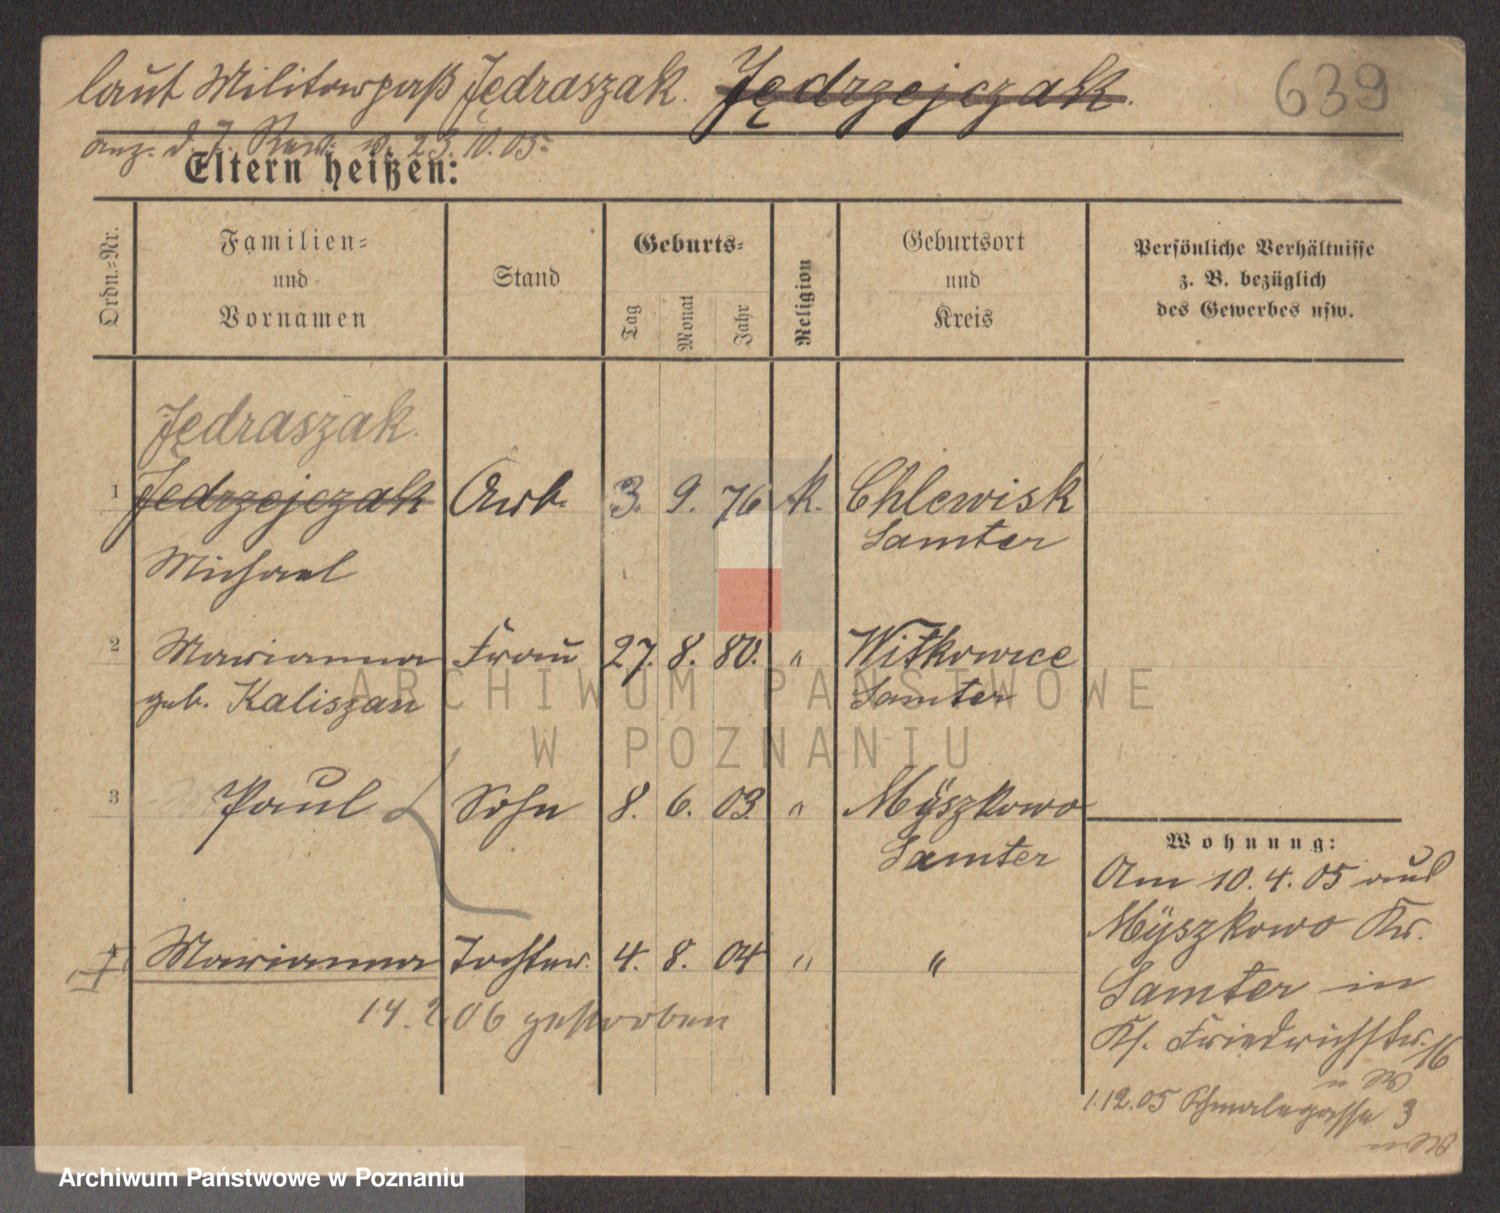 laut Militärpaß Jędraszak. Jędrzejczak. 639
anz. d. 7. v. 23.10.05.
Eltern heißen:
Ordn.-Nr.
Familien-
und
Vornamen
Stand
Geburts-
Tag
Monat
Jahr
Religion
Geburtsort
und
Kreis
Persönliche Verhältnisse
z. B. bezüglich
des Gewerbes usw.
Jędraszak.
1 Jędrzejczak Arb. 3. 9. 76 k. Chlewisk
Samter
Michael
2 Marianna Frau 27. 8. 80. " Witkowice
geb. Kaliszan Samter
ARCHIWUM PAŃSTWOWE
W POZNANIU
3 Paul Sohn 8. 6. 03. " Mÿszkowo
Samter
4 Marianna Tochter. 4. 8. 04 " "
14.2.06 gestorben
Wohnung:
Am 10.4.05 aus
Mÿszkowo Kr.
Samter in
Kl. Friedrichstr. 16
1.12.05 Schmalegasse 3
Archiwum Państwowe w Poznaniu